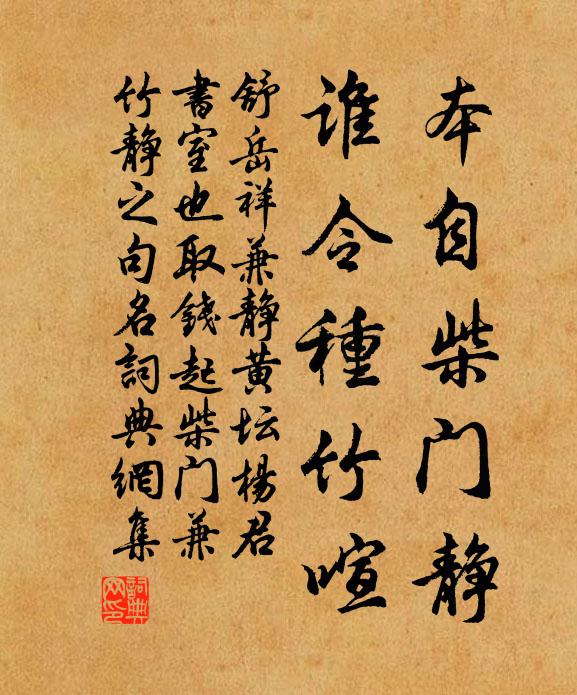 本自柴门静
谁令種竹喧
舒岳祥兼静黄坛楊君
書室也取錢起柴门兼
竹静之句名詞典網集
詞典网印